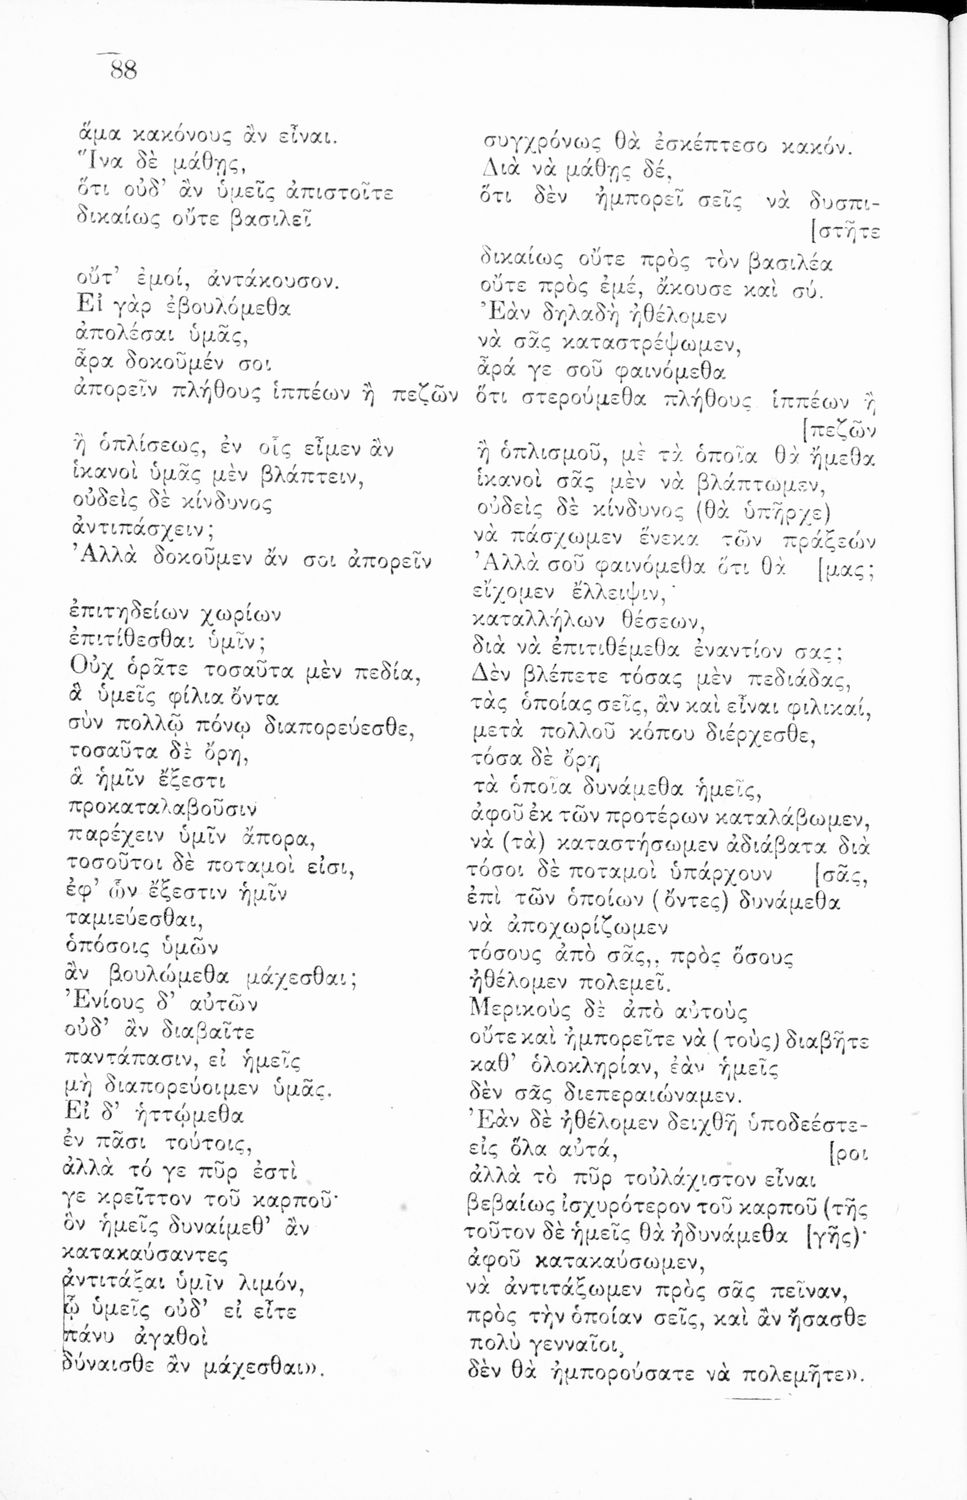 88
ἅμα κακόνους ἂν εἶναι.
Ἵνα δὲ μάθῃς,
ὅτι οὐδ’ ἂν ὑμεῖς ἀπιστοῖτε
δικαίως οὔτε βασιλεῖ
οὔτ’ ἐμοί, ἀντάκουσον.
Εἰ γὰρ ἐβουλόμεθα
ἀπολέσαι ὑμᾶς,
ἆρα δοκοῦμέν σοι
ἀπορεῖν πλήθους ἱππέων ἢ πεζῶν
ἢ ὁπλίσεως, ἐν οἷς εἶμεν ἂν
ἱκανοὶ ὑμᾶς μὲν βλάπτειν,
οὐδεὶς δὲ κίνδυνος
ἀντιπάσχειν;
Ἀλλὰ δοκοῦμεν ἄν σοι ἀπορεῖν
ἐπιτηδείων χωρίων
ἐπιτίθεσθαι ὑμῖν;
Οὐχ ὁρᾶτε τοσαῦτα μὲν πεδία,
ἃ ὑμεῖς φίλια ὄντα
σὺν πολλῷ πόνῳ διαπορεύεσθε,
τοσαῦτα δὲ ὄρη,
ἃ ἡμῖν ἔξεστι
προκαταλαβοῦσιν
παρέχειν ὑμῖν ἄπορα,
τοσοῦτοι δὲ ποταμοὶ εἰσι,
ἐφ’ ὧν ἔξεστιν ἡμῖν
ταμιεύεσθαι,
ὁπόσοις ὑμῶν
ἂν βουλώμεθα μάχεσθαι;
Ἐνίους δ’ αὐτῶν
οὐδ’ ἂν διαβαῖτε
παντάπασιν, εἰ ἡμεῖς
μὴ διαπορεύοιμεν ὑμᾶς.
Εἰ δ’ ἡττώμεθα
ἐν πᾶσι τούτοις,
ἀλλὰ τό γε πῦρ ἐστὶ
γε κρεῖττον τοῦ καρποῦ·
ὃν ἡμεῖς δυναίμεθ’ ἂν
κατακαύσαντες
ἀντιτάξαι ὑμῖν λιμόν,
ᾧ ὑμεῖς οὐδ’ εἰ εἶτε
πάνυ ἀγαθοὶ
δύναισθε ἂν μάχεσθαι».
συγχρόνως θὰ ἐσκέπτεσο κακόν.
Διὰ νὰ μάθῃς δέ,
ὅτι δὲν ἠμπορεῖ σεῖς νὰ δυσπι-
[στῆτε
δικαίως οὔτε πρὸς τὸν βασιλέα
οὔτε πρὸς ἐμέ, ἄκουσε καὶ σύ.
Ἐὰν δηλαδὴ ἠθέλομεν
νὰ σᾶς καταστρέψωμεν,
ἆρά γε σοῦ φαινόμεθα
ὅτι στερούμεθα πλήθους ἱππέων ἢ
[πεζῶν
ἢ ὁπλισμοῦ, μὲ τὰ ὁποῖα θὰ ἤμεθα
ἱκανοὶ σᾶς μὲν νὰ βλάπτωμεν,
οὐδεὶς δὲ κίνδυνος (θὰ ὑπῆρχε)
νὰ πάσχωμεν ἕνεκα τῶν πράξεών
Ἀλλὰ σοῦ φαινόμεθα ὅτι θὰ [μας;
εἴχομεν ἔλλειψιν,
καταλλήλων θέσεων,
διὰ νὰ ἐπιτιθέμεθα ἐναντίον σας;
Δὲν βλέπετε τόσας μὲν πεδιάδας,
τὰς ὁποίας σεῖς, ἂν καὶ εἶναι φιλικαί,
μετὰ πολλοῦ κόπου διέρχεσθε,
τόσα δὲ ὄρη
τὰ ὁποῖα δυνάμεθα ἡμεῖς,
ἀφοῦ ἐκ τῶν προτέρων καταλάβωμεν,
νὰ (τὰ) καταστήσωμεν ἀδιάβατα διὰ
τόσοι δὲ ποταμοὶ ὑπάρχουν [σᾶς,
ἐπὶ τῶν ὁποίων (ὄντες) δυνάμεθα
νὰ ἀποχωρίζωμεν
τόσους ἀπὸ σᾶς,. πρὸς ὅσους
ἠθέλομεν πολεμεῖ.
Μερικοὺς δὲ ἀπὸ αὐτοὺς
οὔτε καὶ ἠμπορεῖτε νὰ (τοὺς) διαβῆτε
καθ’ ὁλοκληρίαν, ἐὰν ἡμεῖς
δὲν σᾶς διεπεραιώναμεν.
Ἐὰν δὲ ἠθέλομεν δειχθῆ ὑποδεέστε-
εἰς ὅλα αὐτά, [ροι
ἀλλὰ τὸ πῦρ τοὐλάχιστον εἶναι
βεβαίως ἰσχυρότερον τοῦ καρποῦ (τῆς
τοῦτον δὲ ἡμεῖς θὰ ἠδυνάμεθα [γῆς)·
ἀφοῦ κατακαύσωμεν,
νὰ ἀντιτάξωμεν πρὸς σᾶς πεῖναν,
πρὸς τὴν ὁποίαν σεῖς, καὶ ἂν ἤσασθε
πολὺ γενναῖοι,
δὲν θὰ ἠμπορούσατε νὰ πολεμῆτε».